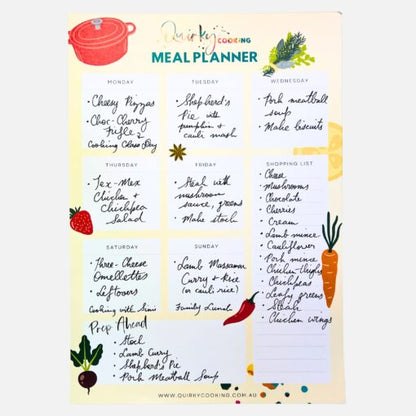 Quirky COOKING
MEAL PLANNER
MONDAY
• Cheesy Pizzas
• Choc-Cherry
Trifle &
Cooking Class Day
TUESDAY
• Shepherd's
Pie with
pumpkin &
cauli mash
WEDNESDAY
• Pork meatball
soup
• Make biscuits
THURSDAY
• Tex-Mex
Chicken &
Chickpea
Salad
FRIDAY
• Steak with
mushroom
sauce, greens
• Make stock
SHOPPING LIST
• Cheese
• Mushrooms
• Chocolate
• Cherries
• Cream
• Lamb mince
• Cauliflower
• Pork mince
• Chicken thighs
• Chickpeas
• Leafy greens
• Steak
• Chicken wings
SATURDAY
• Three-Cheese
Omelettes
• Leftovers
Cooking with
SUNDAY
• Lamb Massaman
Curry & Rice
(or cauli rice)
Family Lunch
Prep Ahead
• Stock
• Lamb Curry
• Shepherd's Pie
• Pork Meatball Soup
WWW.QUIRKYCOOKING.COM.AU